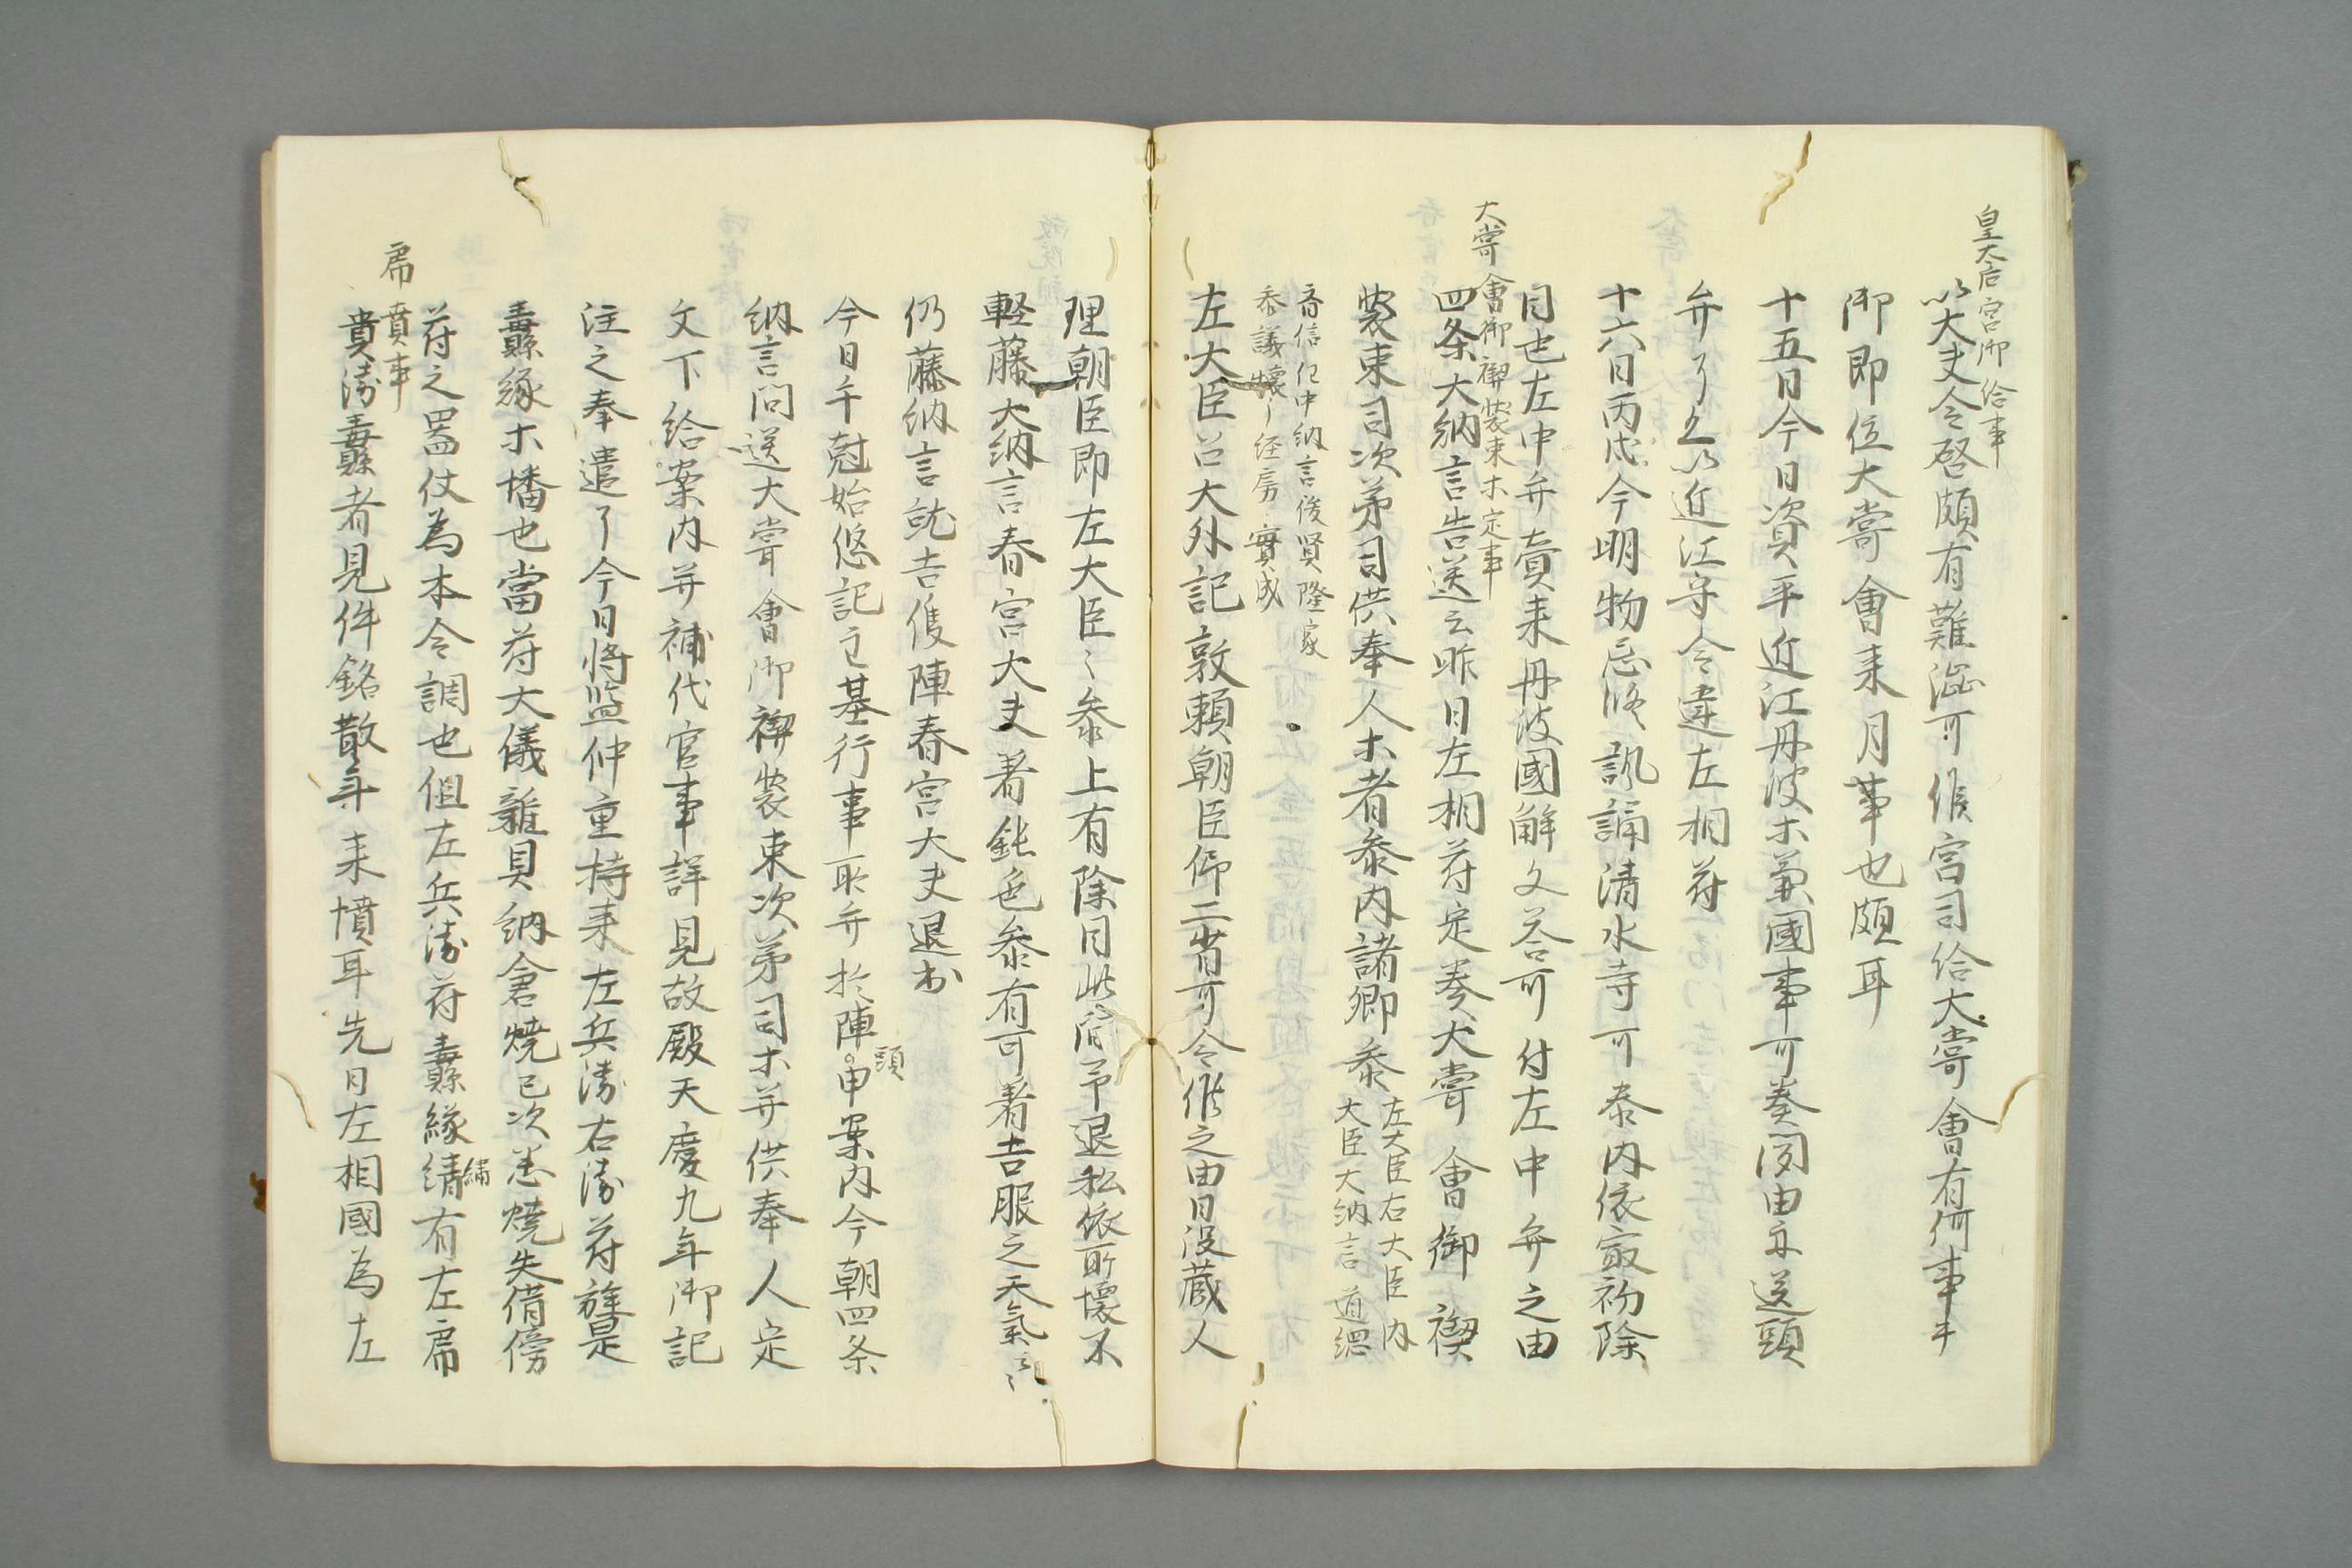 皇太后宮御給事
以大夫令啓頗有難澁可候宮司給大嘗會有何事乎
御即位大嘗會来月事也頗耳
十五日今日資平近江丹波木兼國事可奏聞由示送頭
弁了又以近江守令達左相府
十六日丙戌今明物忌修諷誦清水寺可参内依㝡初除
目也左中弁賣来丹波國解文荅可付左中弁之由
大嘗會御禊装束木定事
四条大納言告送云昨日左相府定奏大嘗會御禊
装束司次第司供奉人木者参内諸卿参左大臣右大臣内
大臣大納言道綱
斉信仁中納言俊賢隆家
参議懐丨経房實成
左大臣召大外記敦頼朝臣仰二省可令候之由日没蔵人
理朝臣即左大臣〻参上有除目此間予退私依所壊不
軽藤大納言春宮大夫著鈍色参有可著吉服之天氣云〻
仍藤納言就吉隻陣春宮大夫退出
今日午剋始悠記主基行事所弁於陣頭申案内今朝四条
納言問送大嘗會御禊装束次第司木并供奉人定
文下給案内并補代官事詳見故殿天慶九年御記
注之奉遣了今日将監仲重持来左兵衛右衛府旌是
纛縁木幡也當府大儀雑具納倉焼已次恙焼失借傍
府之器仗為本令調也但左兵衛府纛縁繡有左廌
廌賁事
賁衛纛者見件銘散年来憤耳先日左相國為左